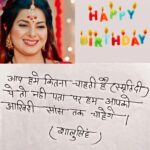 HAPPY
BIRTHDAY
आप हमे कितना चाहती है (स्मृति)
ये तो नही पता पर हम आपको
आखिरी सांस तक चाहेगे ।
(कालुसिंह)